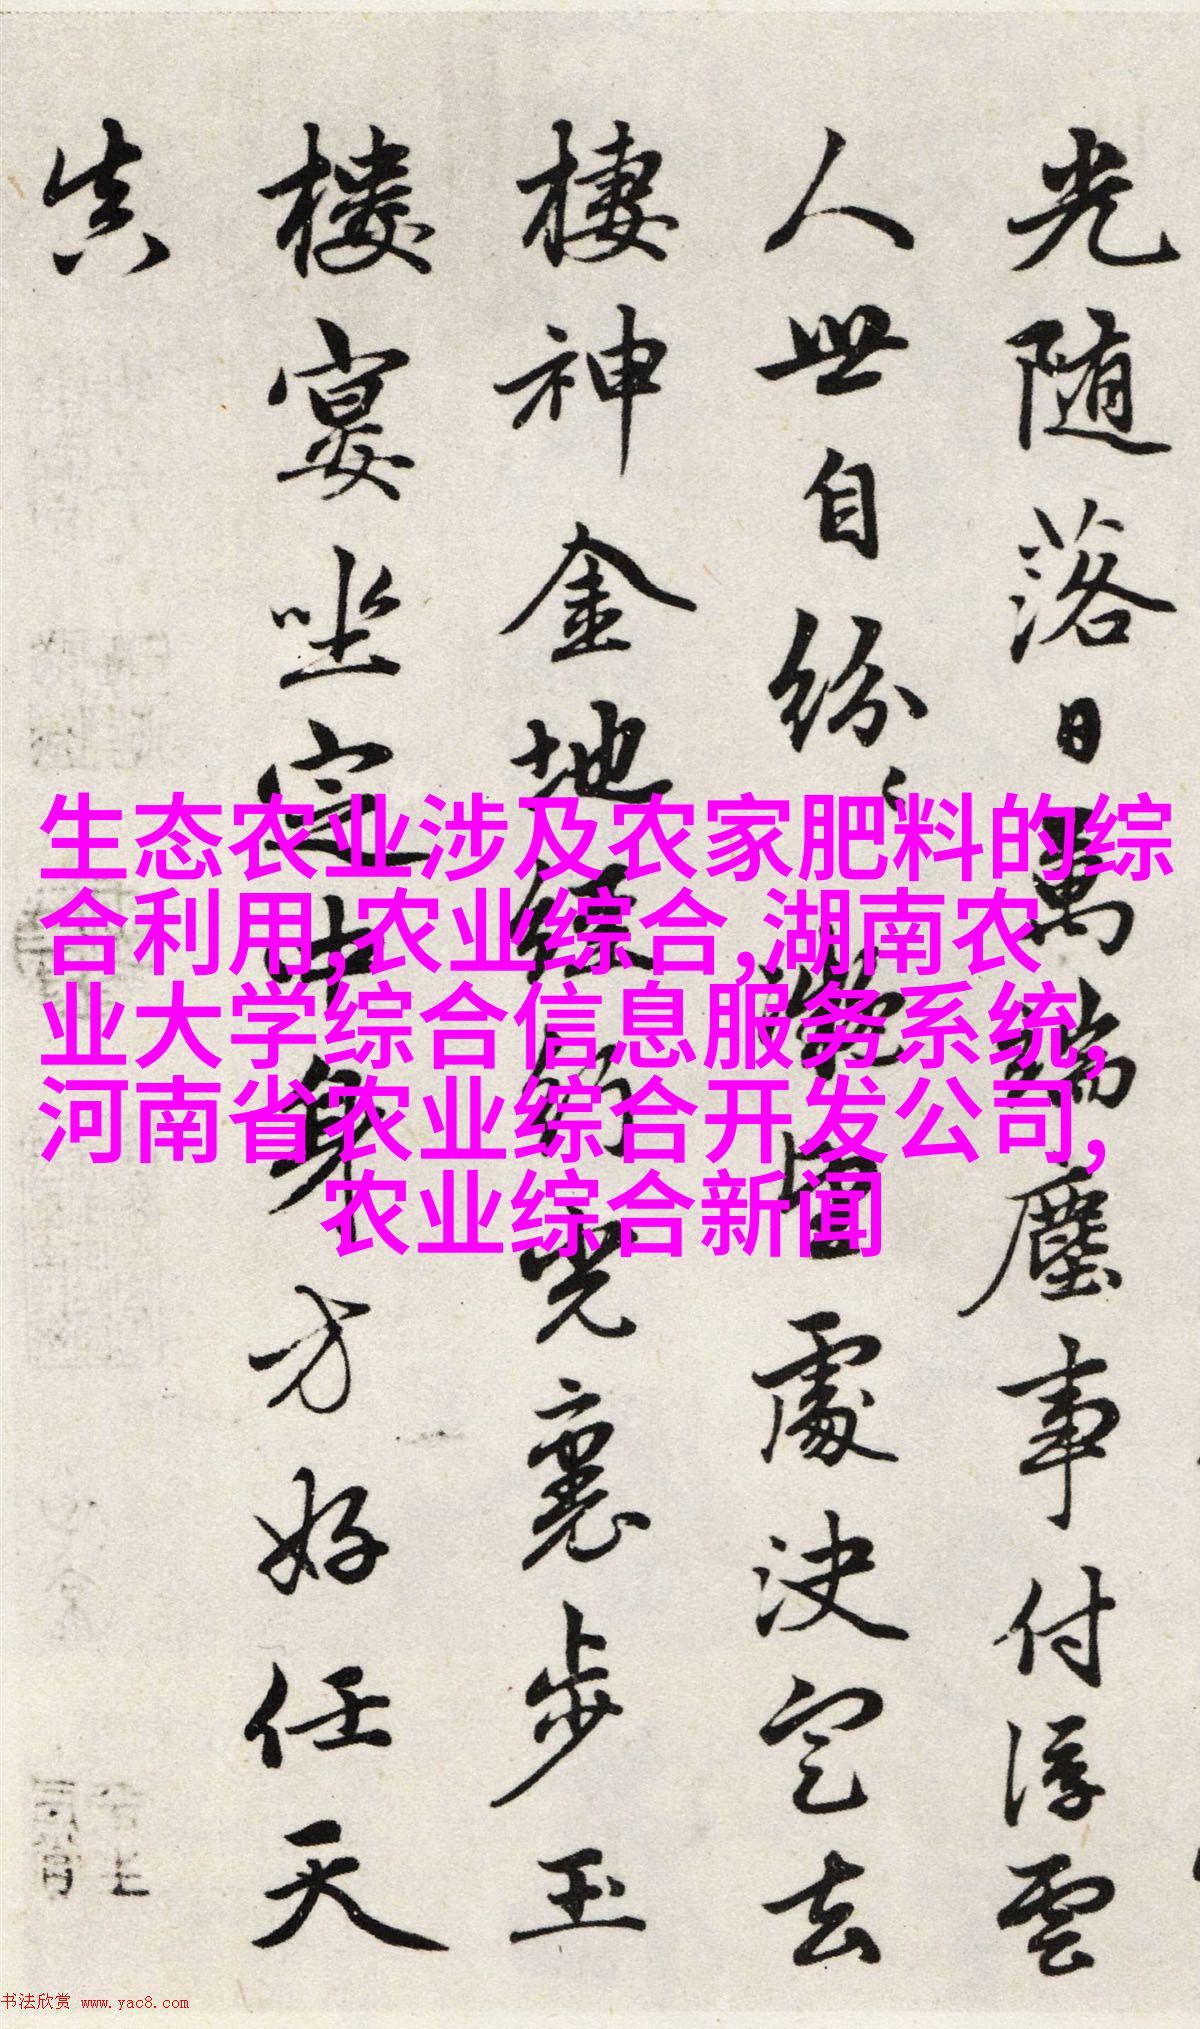 光随落日萬端塵事付浮雲
人世自紛〻處决定去
棲神金地經光裏步玉
樓宴坐定中身方好任天
真
生态农业涉及农家肥料的综
合利用,农业综合,湖南农
业大学综合信息服务系统,
河南省农业综合开发公司,
农业综合新闻
书法欣赏 www.yac8.com